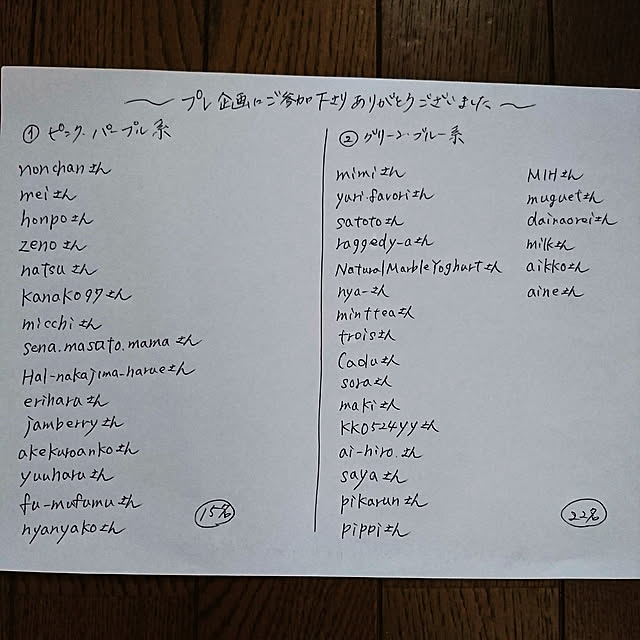 ～ プレ企画にご参加下さりありがとうございました ～
① ピンク・パープル系
nonchanさん
meiさん
honpoさん
zenoさん
natsuさん
kanako97さん
micchiさん
sena.masato.mamaさん
Hal-nakajima-harueさん
eriharuさん
jamberryさん
akekuroankoさん
yuuharuさん
fu-mufumuさん
nyanyakoさん
15名
② グリーン・ブルー系
mimiさん
yuri.favoriさん
satotoさん
raggedy-aさん
NaturalMarbleYoghurtさん
nya-さん
mintteaさん
troisさん
Caduさん
soraさん
makiさん
KK0524yyさん
ai-hiro.さん
sayaさん
pikarunさん
pippiさん
MIHさん
muguetさん
dainaoreiさん
milkさん
aikkoさん
aineさん
22名